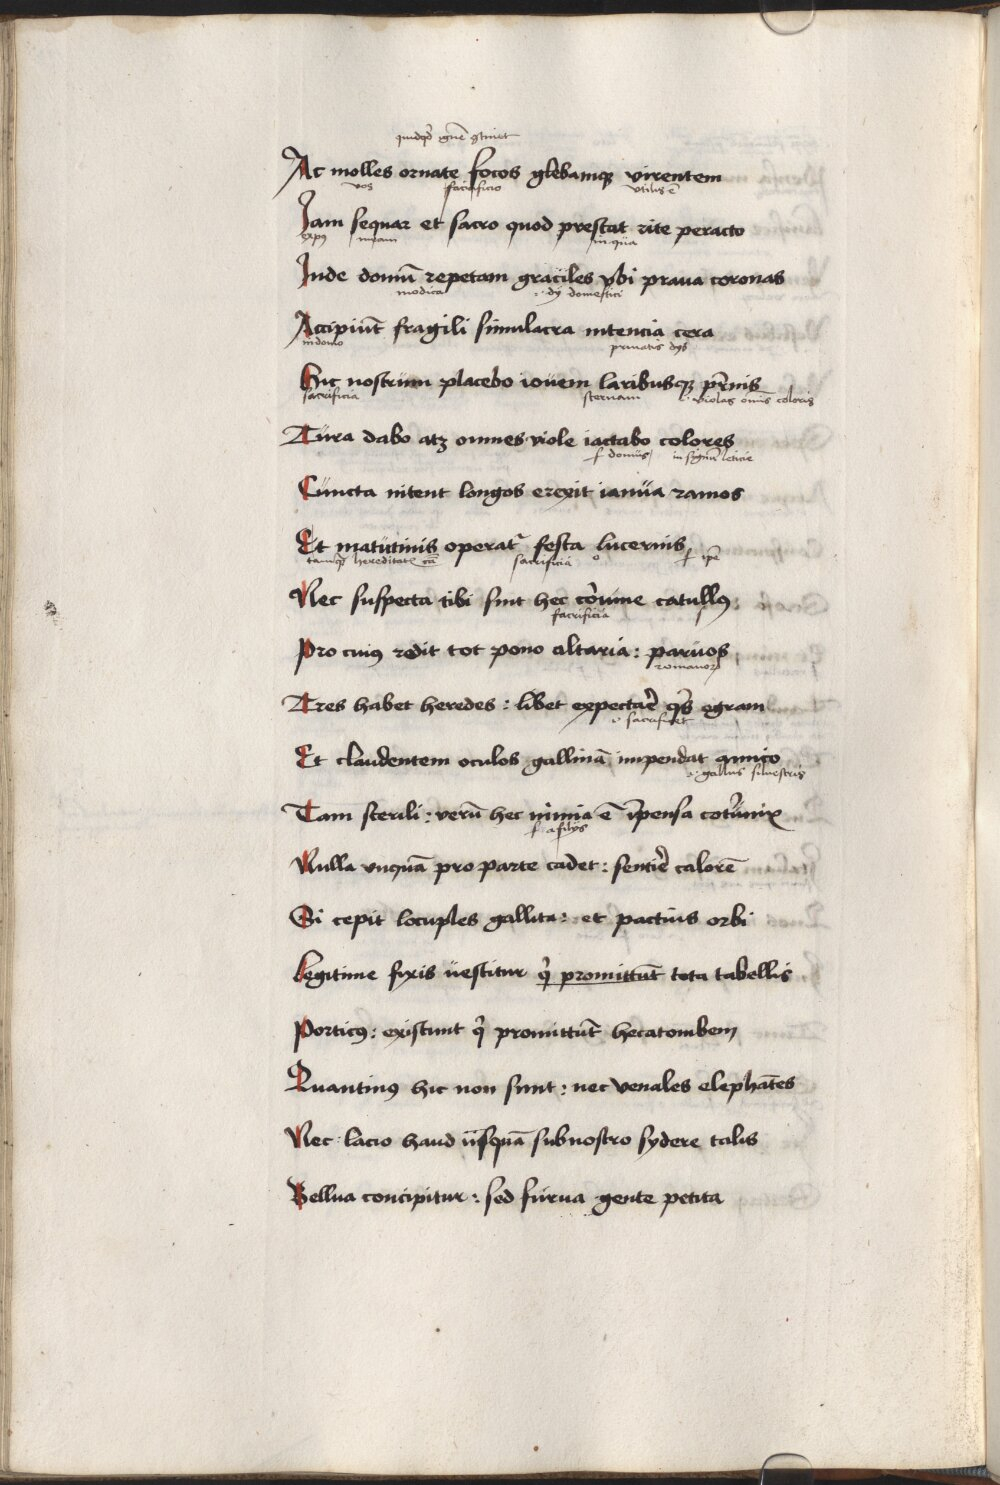 quidqd ignē gtinet
Ac molles ornate focos glebamqꝫ virentem
vos sacrificio vtilis ē
Iam sequar et sacro quod prestat rite peracto
meam in qua
Inde domū repetam graciles vbi praua coronas
modica dij domestici
Accipiūt fragili simulacra nitencia cera
in domo priuatis dijs
Hic nostrum placebo iouem laribusqꝫ pr̄nis
sacrificia sternam violas omīs coloris
Tura dabo atqꝫ omnes viole iactabo colores
s domus in signū leticie
Cuncta nitent longos erexit ianua ramos
Et matutinis operatr festa lucernis
tamqꝫ hereditatis cā sacrificia s ipē
Nec suspecta tibi sint hec coruine catullꝰ
sacrificia
Pro cuiꝰ redit tot pono altaria : paruos
romanorꝫ
Tres habet heredes : libet expectare qs egram
sacrificet
Et claudentem oculos gallinā impendat amico
gallus siluestris
Tam sterili : verū hec nimia ē īpensa coturnix
s a filijs
Nulla vnquā pro parte cadet : sentire calorē
Si cepit locuples gallita : et pactius orbi
Legitime fixis uestitur q promittūt tota tabellis
Porticꝰ : existunt q promittūt hecatombem
Quatinꝰ hic non sunt : nec venales elephātes
Nec lacio haud usquā sub nostro sydere talis
Bellua concipitur : sed furua gente petita